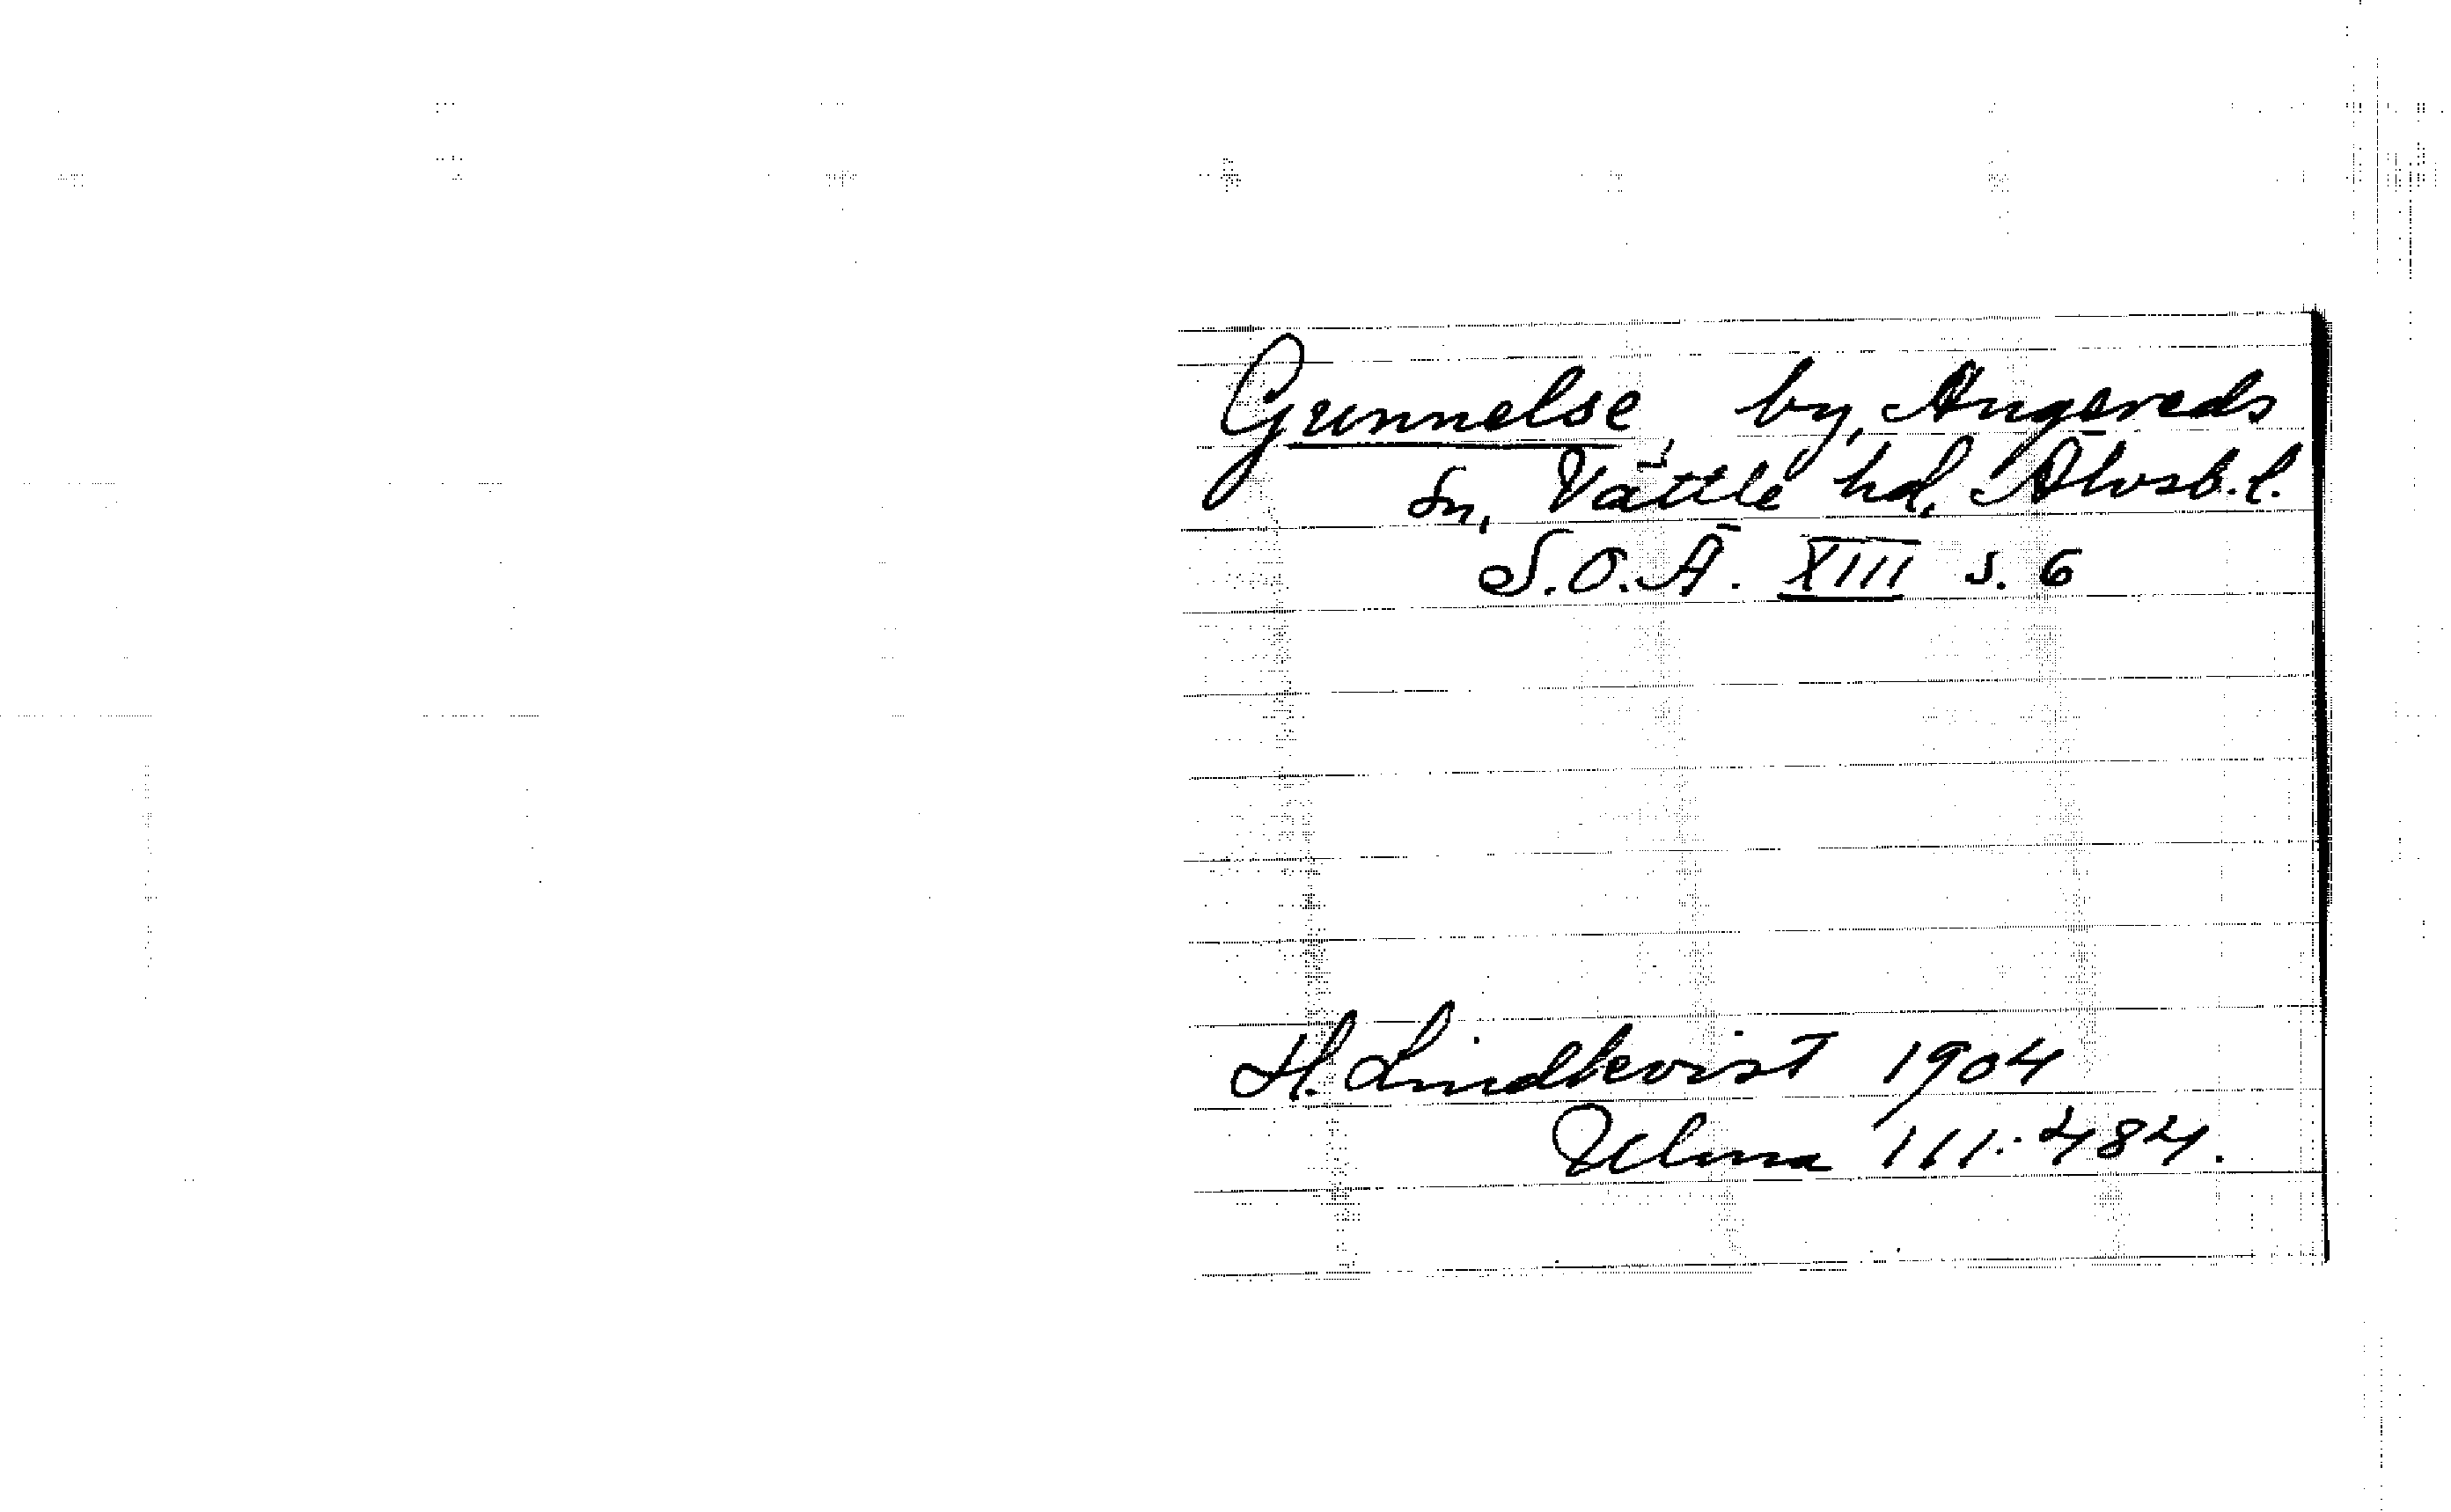 Gunnelse, by, Angereds
sn, Vättle hd, Älvsb.l.
S.O.Ä. XIII s. 6
H. Lindkvist 1904
Ulma 111:484.